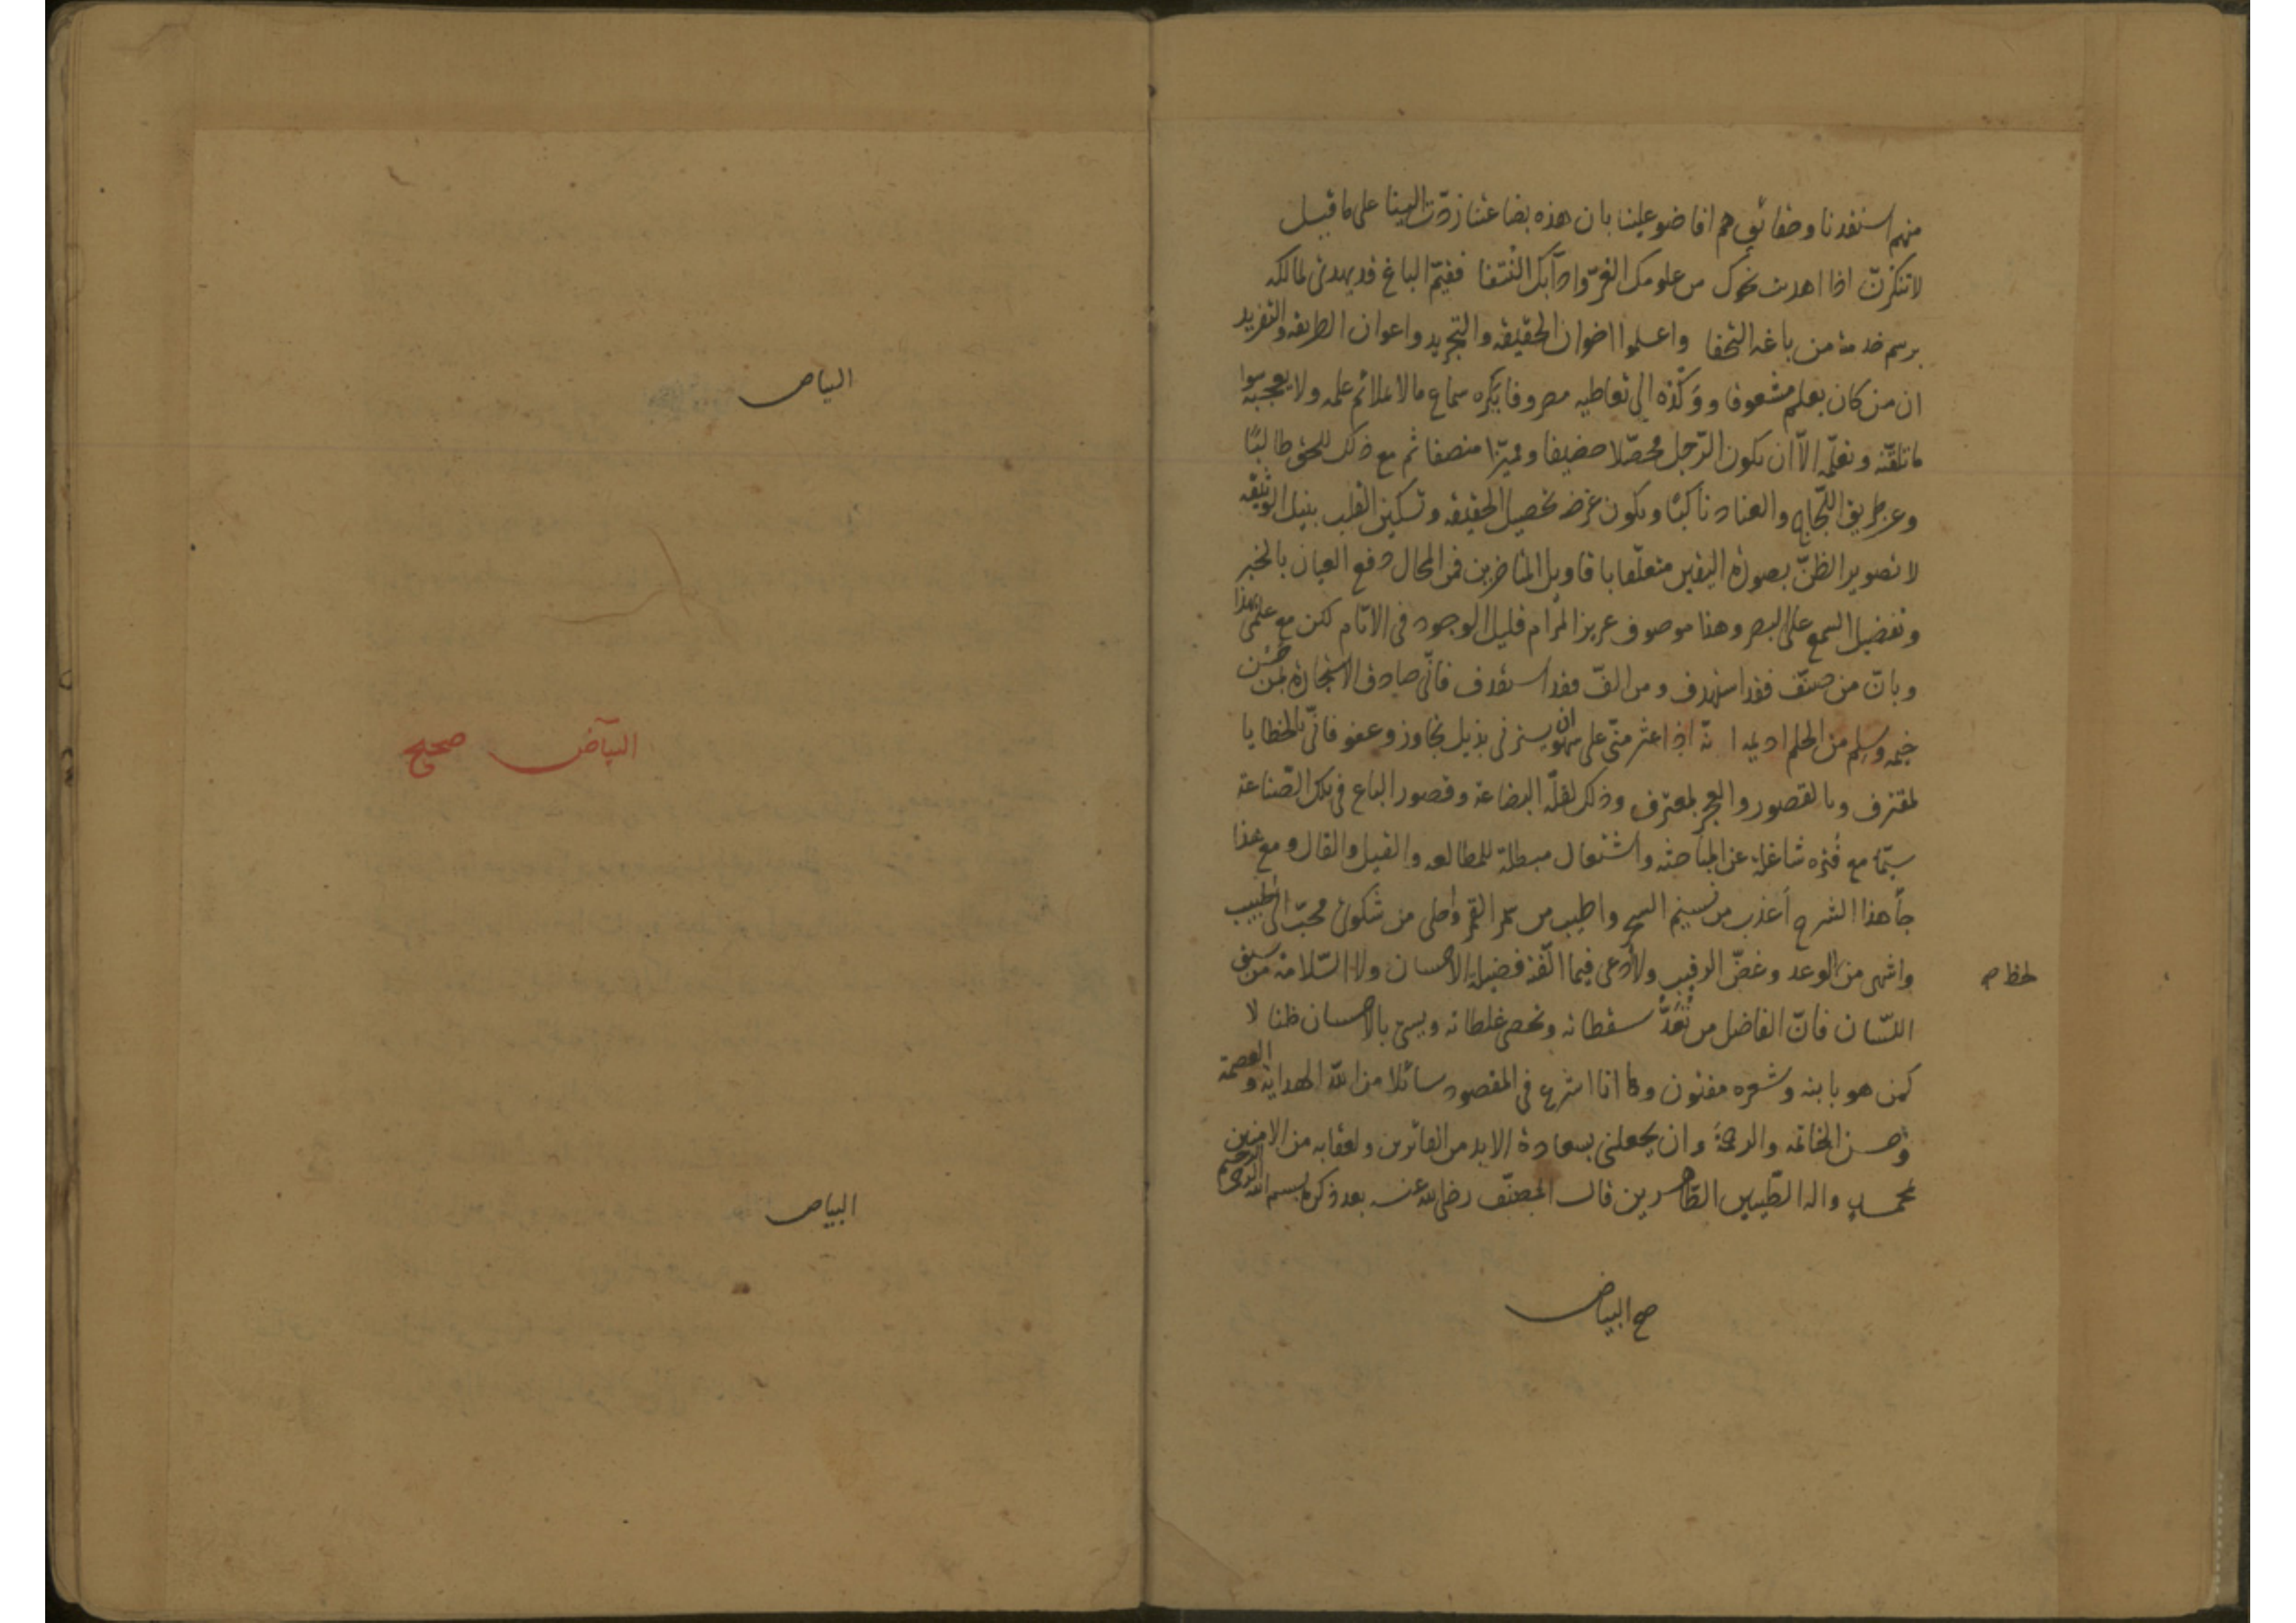 منهم استفدنا وحقائق هم افاضو علينا بان هذه بضاعتنا ردّت الينا على ما قيل
لا تنكرنّ اذا اهديت نحوك من علومك الغرّ وآدابك النتفا فقيّم الباغ قد يهدى لمالكه
برسم خدمته من باغه التحفا واعلموا اخوان الحقيقه والتجريد واعوان الطريقه والتفريد
ان من كان بعلم مشعوفا ووكده الى تعاطيه مصروفا يكره سماع ما لا يلائم علمه ولا يعجبه سوا
ما تلقّنه وتعلّمه الّا ان يكون الرّجل محصّلا حصيفا ومميّزا منصفا ثم مع ذلك للحق طالبًا
وعن طريق اللّجاج والعناد ناكبًا ويكون غرضه تحصيل الحقيقه وتسكين القلب بنيل الوثيقه
لا تصوير الظنّ بصورة اليقين متعلّقا باقاويل المتاخرين فمن المحال دفع العيان بالخبر
وتفضيل السمع على البصر وهذا موصوف عزيز المرام قليل الوجود فى الانام لكن مع علمى هذا
وبانّ من صنّف فقد استهدف ومن الّف فقد استقذف فانّى صادق الاستجارة لمن حسن
خيمه وسلم من الحلم اديمه انّه اذا عثر منّى على سهو ان يسترنى بذيل تجاوز وعفو فانّى بالخطايا
لمقترف وبالقصور والعجز لمعترف وذلك لقلّة البضاعة وقصور الباع فى تلك الصّناعة
سيّما مع فتره شاغلة عن المباحثه واشتعال مبطلة للمطالعه والقيل والقال ومع هذا
جآ هذا الشرح أعذب من نسيم السحر واطيب من سمر القمر واحلى من شكوى محبّ الى طبيب
واشهى من الوعد وغضّ الرقيب ولا أدعى فيما الّفته فضيلة الاحسان ولا السّلامة من سبق
لحظ صح
اللسّان فانّ الفاضل من تُعَدُّ سقطاته وتحصى غلطاته ويسىء بالاحسان ظنا لا
كمن هو بابنه وشعره مفتون وها انا اشرع فى المقصود سائلا من الله الهداية والعصمة
وحسن الخاتمه والرحمة وان يجعلنى بسعادة الابد من الفائزين ولعقابه من الامنين
بمحمد واله الطّيبين الطّاهرين قال المصنّف رضى الله عنه بعد ذكره بسم الله الرحمن الرحيم
صح البياض
البياض
البيآض صحيح
البياض